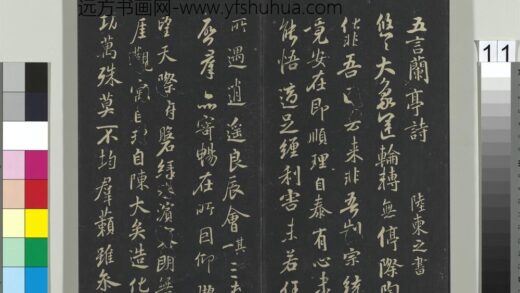 远方书画网 www.yfshuhua.com
五言蘭亭詩 陸柬之書
悠々大象運輪轉無停際陶
化非吾因去來非吾制宗統
竟安在即順理自泰有心未
能悟適足纏利害未若任
所遇逍遙良辰會其一三春
啓羣品寄暢在所因仰眺
望天際俯磐綠水濱寥朗無
厓觀寓目理自陳大矣造化
功萬殊莫不均羣籟雖參
11